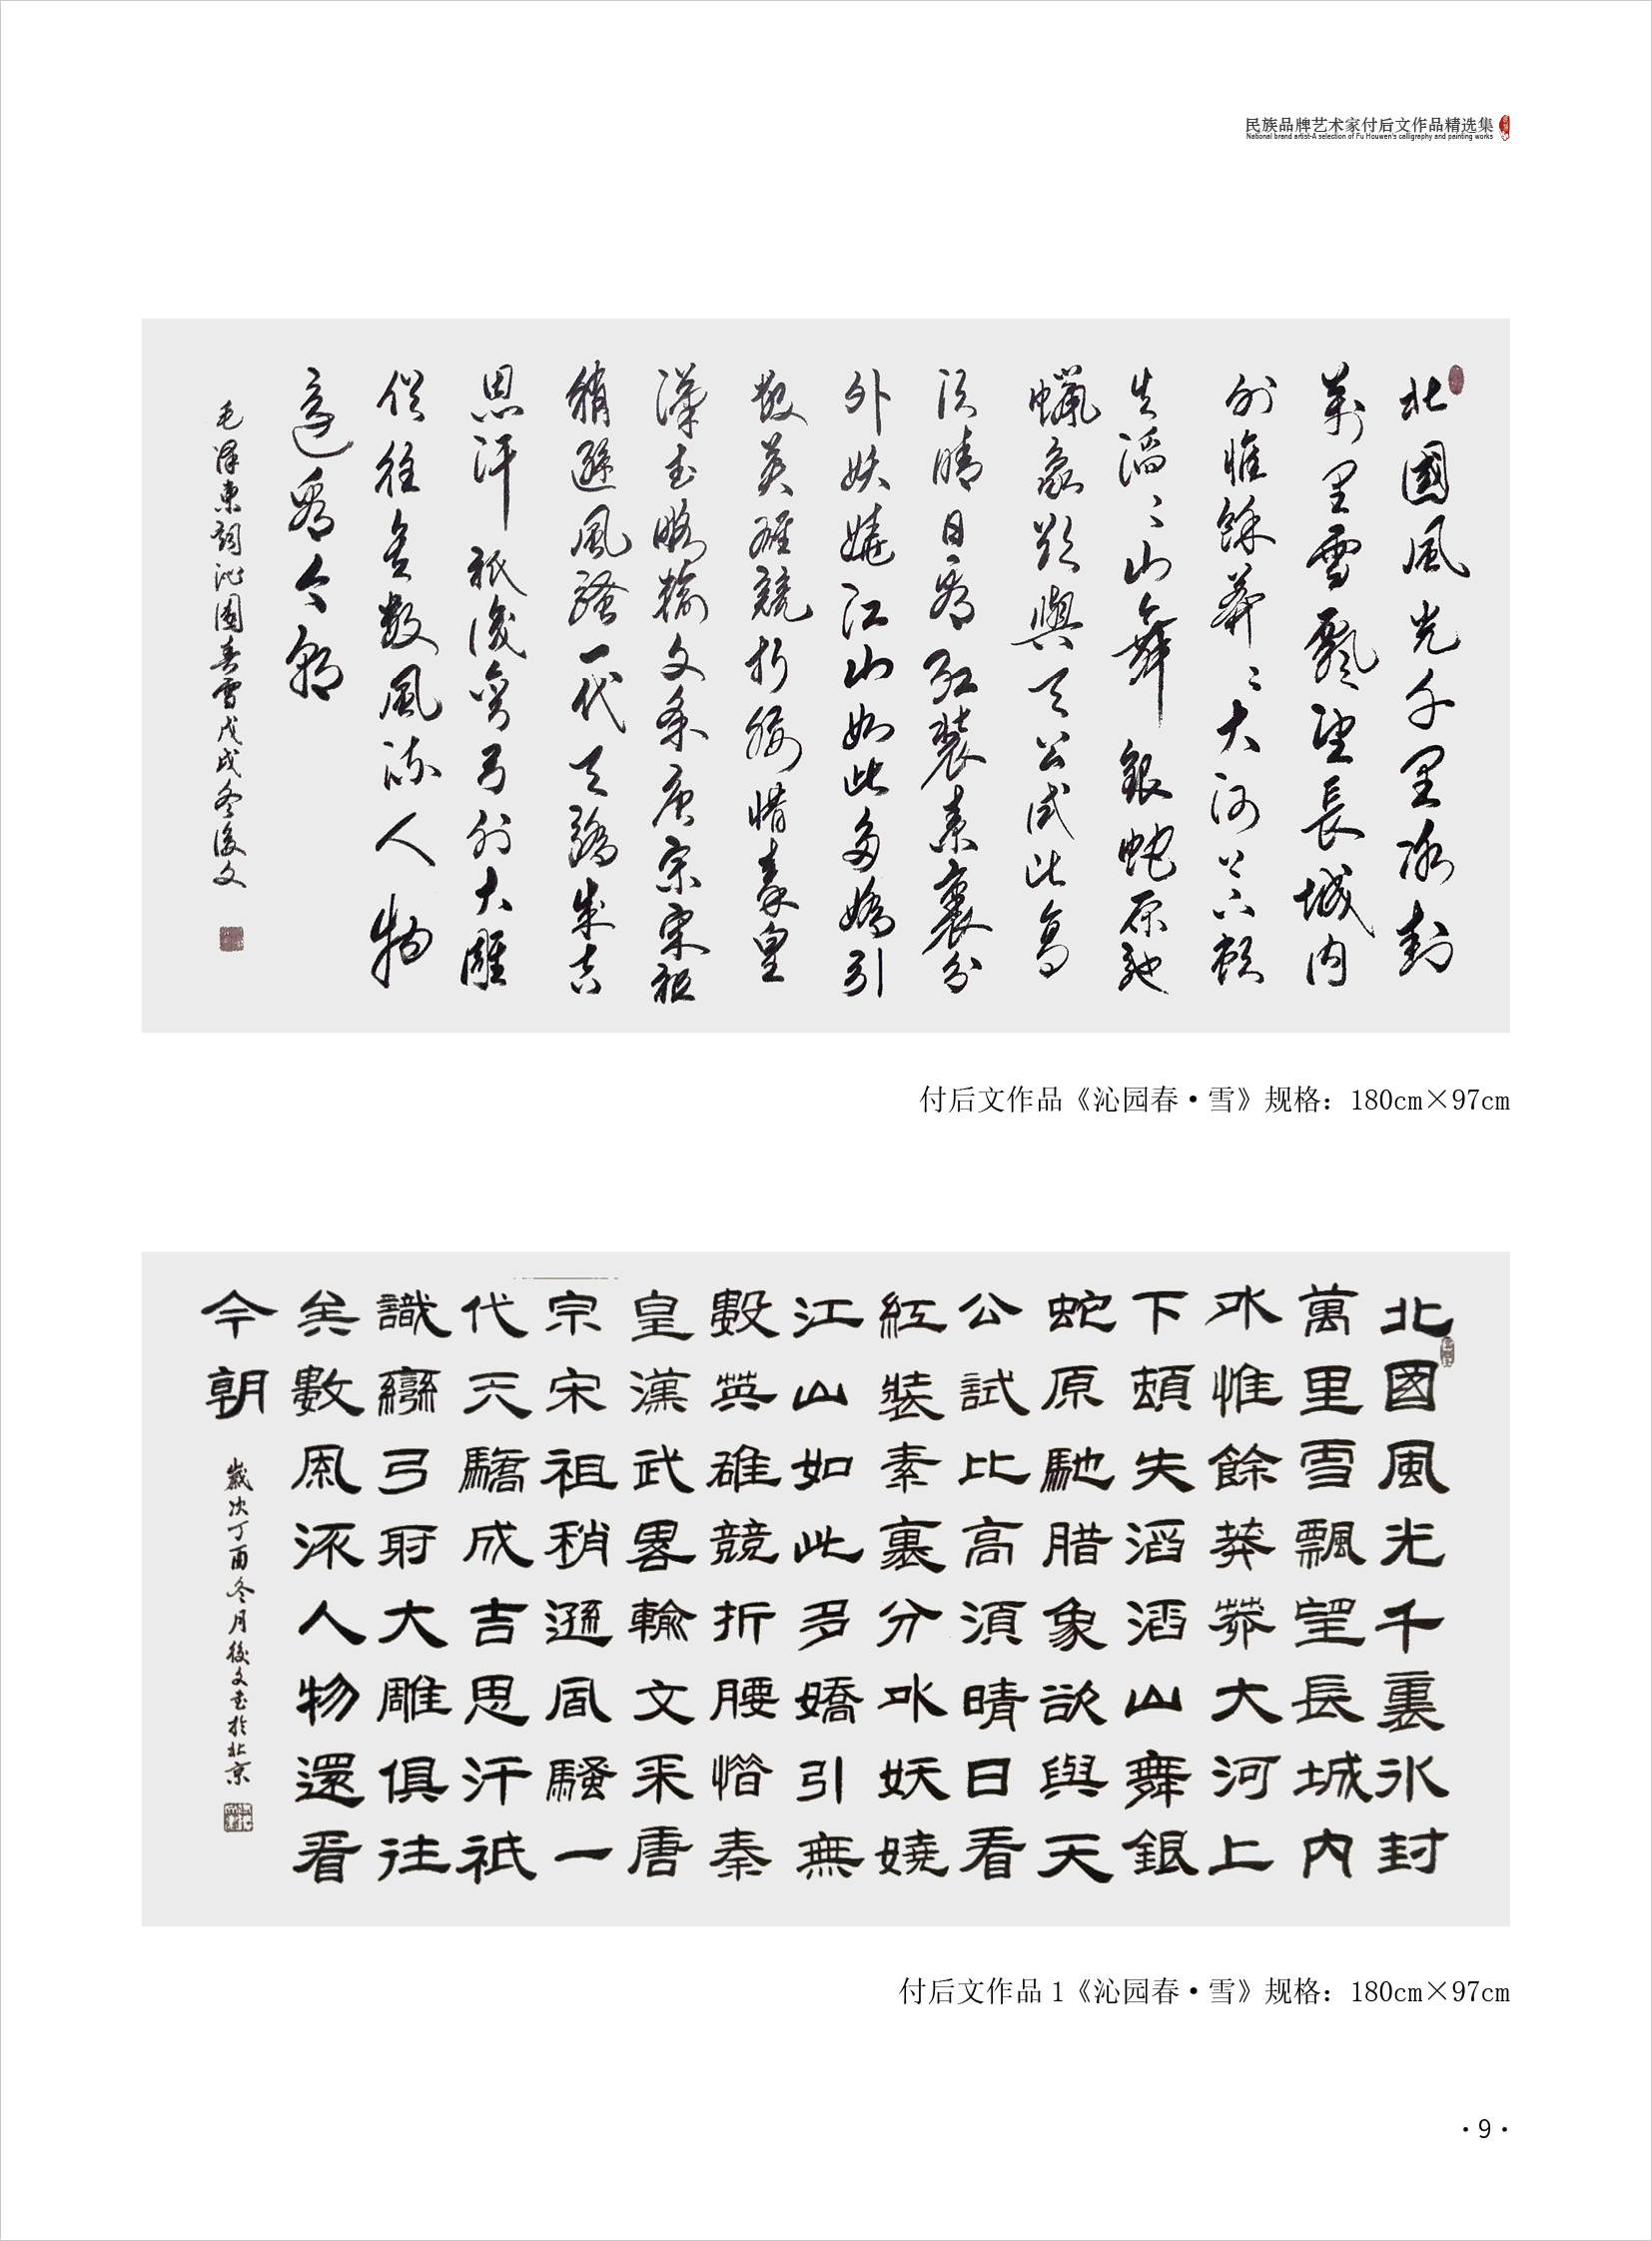 民族品牌艺术家付后文作品精选集
National brand artist-A selection of Fu Houwen's calligraphy and painting works
北國風光千里冰封
萬里雪飄望長城内
外惟餘莽〻大河上下頓
失滔〻山舞銀蛇原馳
蠟象欲與天公試比高
須晴日看紅裝素裹分
外妖嬈江山如此多嬌引
數英雄競折腰惜秦皇
漢武略輸文采唐宗宋祖
稍遜風騷一代天驕成吉
思汗祇識彎弓射大雕
俱往矣數風流人物
還看今朝
毛澤東詞沁園春雪戊戌冬後文
付后文作品《沁园春·雪》规格：180cm×97cm
北國風光千裏氷封
萬里雪飄望長城内
外惟餘莽莽大河上
下頓失滔滔山舞銀
蛇原馳腊象欲與天
公試比高須晴日看
紅裝素裹分外妖嬈
江山如此多嬌引無
數英雄競折腰惜秦
皇漢武畧輸文采唐
宗宋祖稍遜風騷一
代天驕成吉思汗祇
識彎弓射大雕俱往
矣數風流人物還看
今朝
歲次丁酉冬月後文書於北京
付后文作品 1《沁园春·雪》规格：180cm×97cm
·9·